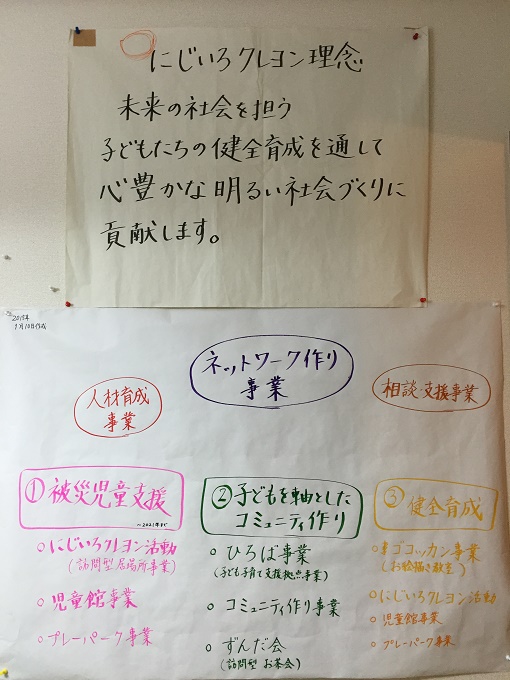 にじいろクレヨン理念
未来の社会を担う
子どもたちの健全育成を通して
心豊かな明るい社会づくりに
貢献します。
ネットワーク作り
事業
人材育成
事業
相談・支援事業
① 被災児童支援
~2021年まで
○にじいろクレヨン活動
(訪問型居場所事業)
○児童館事業
○プレーパーク事業
② 子どもを軸とした
コミュニティ作り
○ひろば事業
(子ども子育て支援拠点事業)
○コミュニティ作り事業
○ずんだ会
(訪問型 お茶会)
③ 健全育成
ゴコッカン事業
(お絵描き教室)
○にじいろクレヨン活動
○児童館事業
○プレーパーク事業